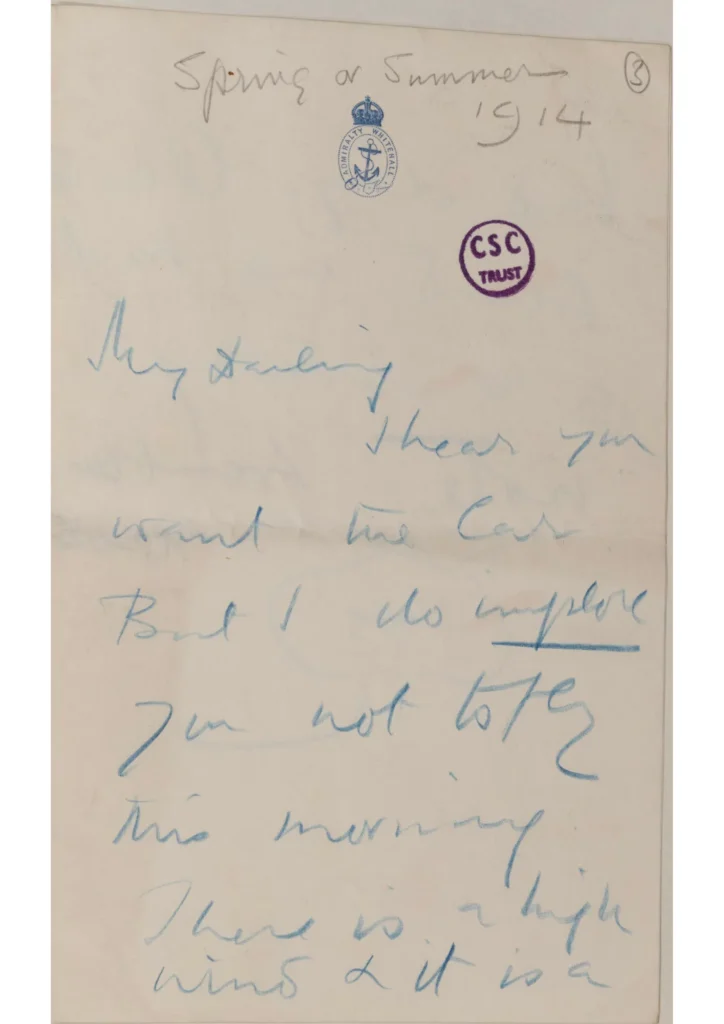 Spring or Summer
1914
3
ADMIRALTY WHITEHALL
CSC
TRUST
My Darling
I hear you
want the Car
But I do implore
you not to fly
this morning.
There is a high
wind & it is a